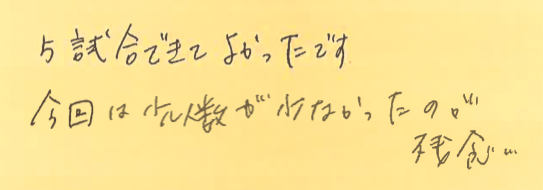 5試合できてよかったです
今回は少し人数が少なかったのが
残念…